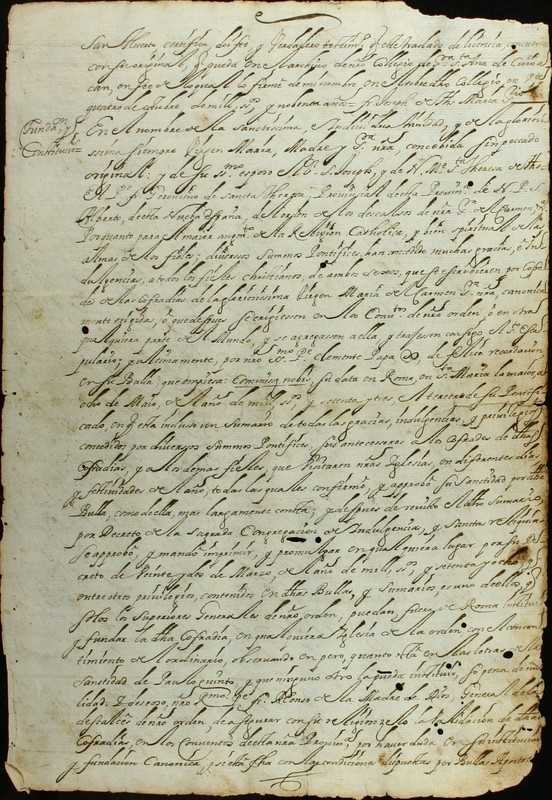 San Alverto, certifico, doi fee, y Verdadero testimo. q este traslado de licencia, concuerda
con su original, q queda en el archivo de nro Collegio de Sta. Ana de
can, en fee de lo qual lo firme de mi nombre, en nuestro dho Collegio, en
quatro de octubre de mil, ss. y noventa años = fr. Joseph de Jhs Maria S.
Fundaon. y
Constituciō=
En el nombre de la Santissima, e Individua trinidad, y de la glorio
sissima siempre Virgen Maria, Madre y Sra. nra, concebida sin peccado
original: y de su ssmo. esposo el Sr. S. Joseph, y de N. Me. Sta. Theresa de Jhs.
El Pe. fr. Geronimo de sancta Theresa, Provincial de esta Provina. de N. P. S.
Alberto, de esta Nueba España, del orden de los descalsos de nra Sra. del Carmen &a.
Por quanto para el maior augmto. de la Religion Catholica, y bien spiritual de las
almas de los fieles; diversos Summos Pontifices, han concedido muchas gracias, e in
dulgencias, a todos los fieles christianos, de ambos sexos, que se escribieren por Cofra
des de las Cofradias de la gloriosissima Virgen Maria del Carmen Sra. nra, canonica
mente erigidas, o que despues se erigiessen en los Convtos. de nra orden, o en otra
qualquiera parte del Mundo, y se agregassen a ella, y trajessen consigo el Sto. Esca
pulario; y ultimamente, por nro ssmo. Pe. Clemente Papa X de felice recordacion
en su Bulla, que empiesa: Commissę nobis, su data en Roma, en Sta. Maria la maior, a
ocho de Maio, del año de mil, ss. y setenta y tres, el tercero de su Pontifi
cado, en q esta incluso un Sumario de todas las gracias, indulgencias, y privilegios
concedidos por diversos Summos Pontifices, sus antecesores a los Cofrades de dhas
Cofradias, y a los demas fieles, que visitaren nras Iglesias, en diferentes dias
y festividades del año, todas las quales confirmó, y approbó su Santidad por dha
Bulla, como de ella, mas largamente consta; y despues de revisto el dho Sumario,
por Decreto de la Sagrada Congregacion de Indulgencias, y Sanctas Reliquias
se approbó, y mandó imprimir, y promulgar en qualquiera lugar por su De
creto de Veinte y dos de Marzo, del año de mil, ss., y setenta y ocho
entre otros privilegios, contenidos en dhas Bullas, y Sumarios, es uno de ellos, q
solos los Superiores Generales de nro orden, puedan, fuera de Roma instituir
y fundar la dha Cofradia, en qualquiera Iglesia de la orden con el consen
timiento del ordinario, observando en pero, quanto está en las letras de la
Sanctidad de Paulo quinto, y que ninguno otro la pueda instituir, so pena de nu
lidad. Y deseoso, nro Rmo. Pe. fr. Alonso de la Madre de Dios, General de los
descalços de nro orden, de asegurar con su religioso zelo la validacion de dha
Cofradia, en los Conventos de esta nra Provina., por haver duda en su institucion
y fundacion Canonica, por esta fha con las condiciones dispuestas por Bullas Apostoli